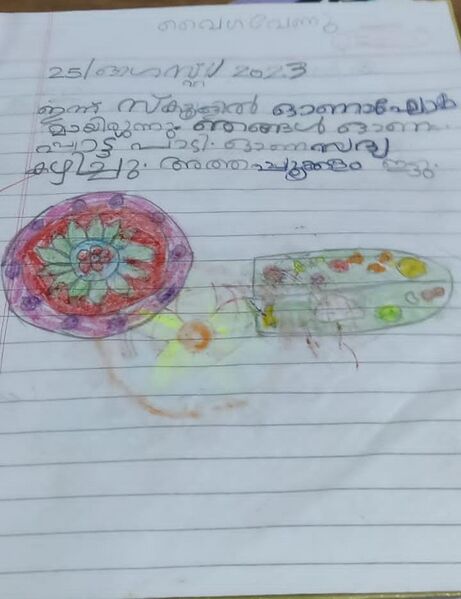 വൈഗവേണു
25/ ഓഗസ്റ്റ്/ 2023
ഇന്ന് സ്കൂളിൽ ഓണാഘോഷ
മായിരുന്നു. ഞങ്ങൾ ഓണ
പ്പാട്ട് പാടി. ഓണസദ്യ
കഴിച്ചു. അത്തപ്പൂക്കളം ഇട്ടു.